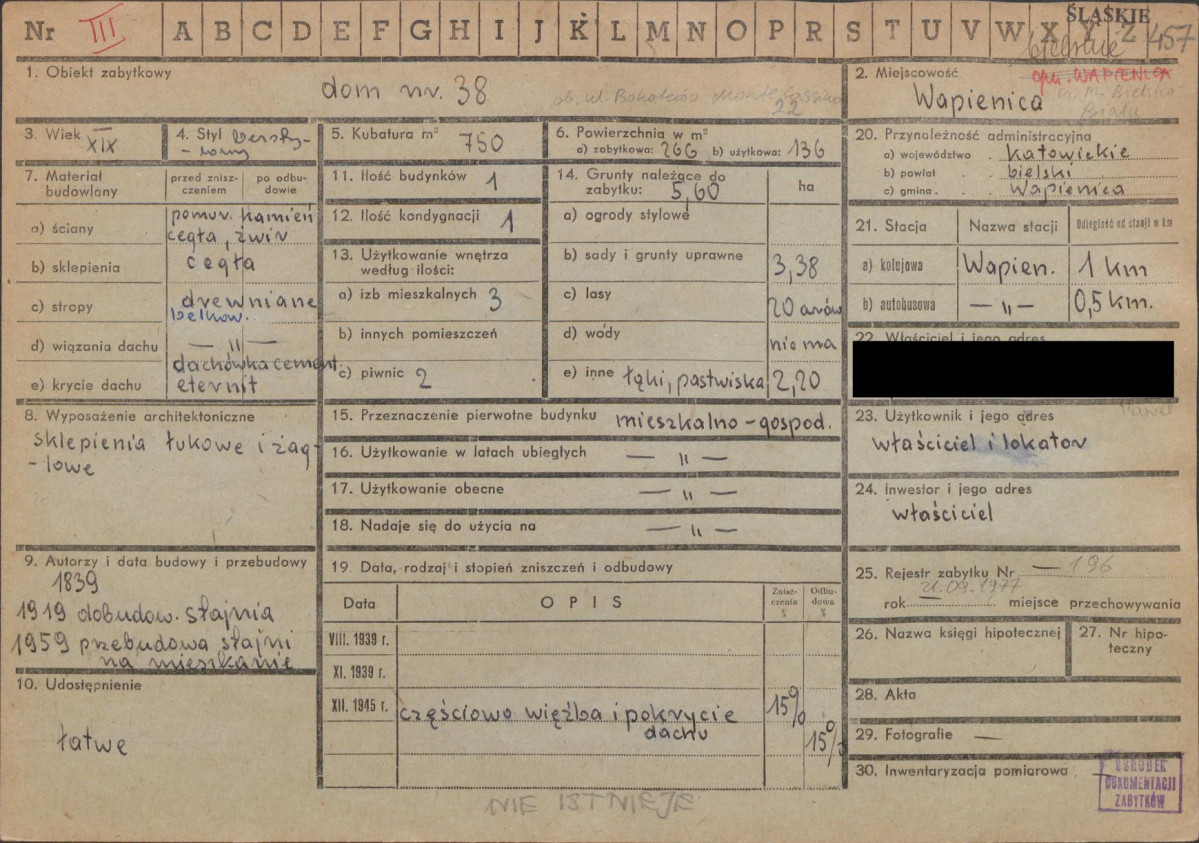 Nr III A B C D E F G H I J K L M N O P R S T U V W X Y Z
ŚLĄSKIE
457
1. Obiekt zabytkowy
dom nr. 38
ob. ul. Bohaterów Monte Cassino
22
2. Miejscowość
gm. WAPIENICA
Wapienica
ob. m. Bielsko
Biała
3. Wiek XIX
4. Styl
5. Kubatura m³ 750
6. Powierzchnia w m²
a) zabytkowa: 266 b) użytkowa: 136
20. Przynależność administracyjna
a) województwo . katowickie
b) powiat . bielski
c) gmina . Wapienica
7. Materiał budowlany
przed zniszczeniem
po odbudowie
a) ściany pomur. kamień
cegła, żwir
b) sklepienia cegła
c) stropy drewniane
belkow.
d) wiązania dachu — " —
e) krycie dachu dachówka cement.
eternit
11. Ilość budynków 1
12. Ilość kondygnacji 1
13. Użytkowanie wnętrza
według ilości:
a) izb mieszkalnych 3
b) innych pomieszczeń
c) piwnic 2
14. Grunty należące do
zabytku: 5,60
ha
a) ogrody stylowe
b) sady i grunty uprawne 3,38
c) lasy 20 arów
d) wody nie ma
e) inne łąki, pastwiska 2,20
21. Stacja Nazwa stacji Odległość od stacji w km
a) kolejowa Wapien. 1 km
b) autobusowa — " — 0,5 km.
22. Właściciel i jego adres
8. Wyposażenie architektoniczne
sklepienia łukowe i żag-
-lowe
15. Przeznaczenie pierwotne budynku mieszkalno-gospod.
16. Użytkowanie w latach ubiegłych — " —
17. Użytkowanie obecne — " —
18. Nadaje się do użycia na — " —
23. Użytkownik i jego adres
właściciel i lokator
24. Inwestor i jego adres
właściciel
9. Autorzy i data budowy i przebudowy
1839
1919 dobudow. stajnia
1959 przebudowa stajni
na mieszkanie
10. Udostępnienie
łatwe
19. Data, rodzaj i stopień zniszczeń i odbudowy
Data OPIS Zniszczenia % Odbudowa %
VIII. 1939 r.
XI. 1939 r.
XII. 1945 r. częściowo więźba i pokrycie 15%
dachu 15%
25. Rejestr zabytku Nr — 196
rok 21.09.1977 miejsce przechowywania
26. Nazwa księgi hipotecznej
27. Nr hipoteczny
28. Akta
29. Fotografie —
30. Inwentaryzacja pomiarowa
OŚRODEK
DOKUMENTACJI
ZABYTKÓW
NIE ISTNIEJE